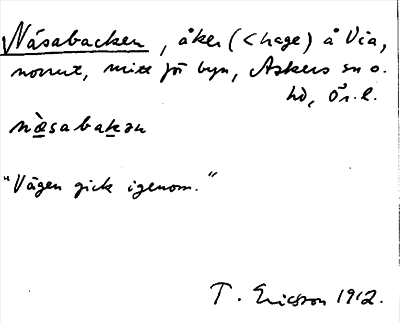 Näsabacken, åker (< hage) å Via,
norrut, mitt för byn, Askers sn o.
hd, Ör. l.
nä̀sabakan
"Vägen gick igenom."
T. Ericsson 1912.